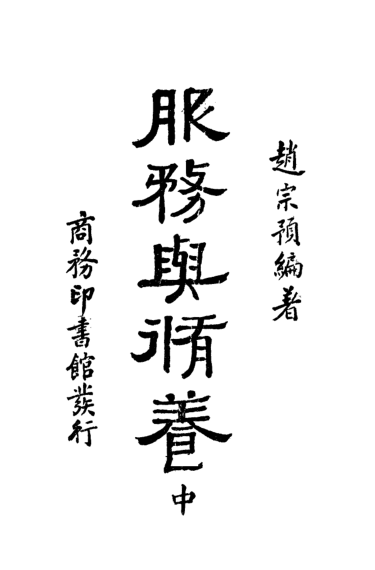 趙宗預編著
服務與脩養
中
商務印書館發行